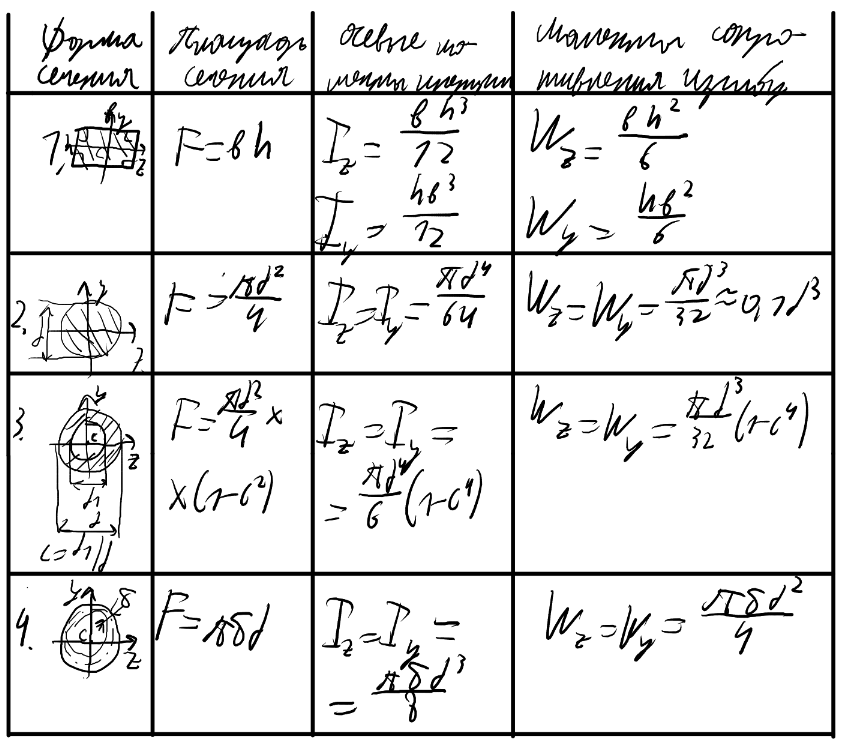 Форма сечения
Площадь сечения
осевые моменты инерции
Моменты сопротивления изгибу
1.
h
в
y
c
z
F = вh
I_z = вh³/12
I_y = hв³/12
W_z = вh²/6
W_y = hв²/6
2.
y
d
z
F = πd²/4
I_z = I_y = πd⁴/64
W_z = W_y = πd³/32 ≈ 0,1d³
3.
y
c
z
d1
d
c = d1/d
F = πd²/4 ×
× (1-c²)
I_z = I_y =
= πd⁴/6 (1-c⁴)
W_z = W_y = πd³/32 (1-c⁴)
4.
y
δ
c
z
F = πδd
I_z = I_y =
= πδd³/8
W_z = W_y = πδd²/4